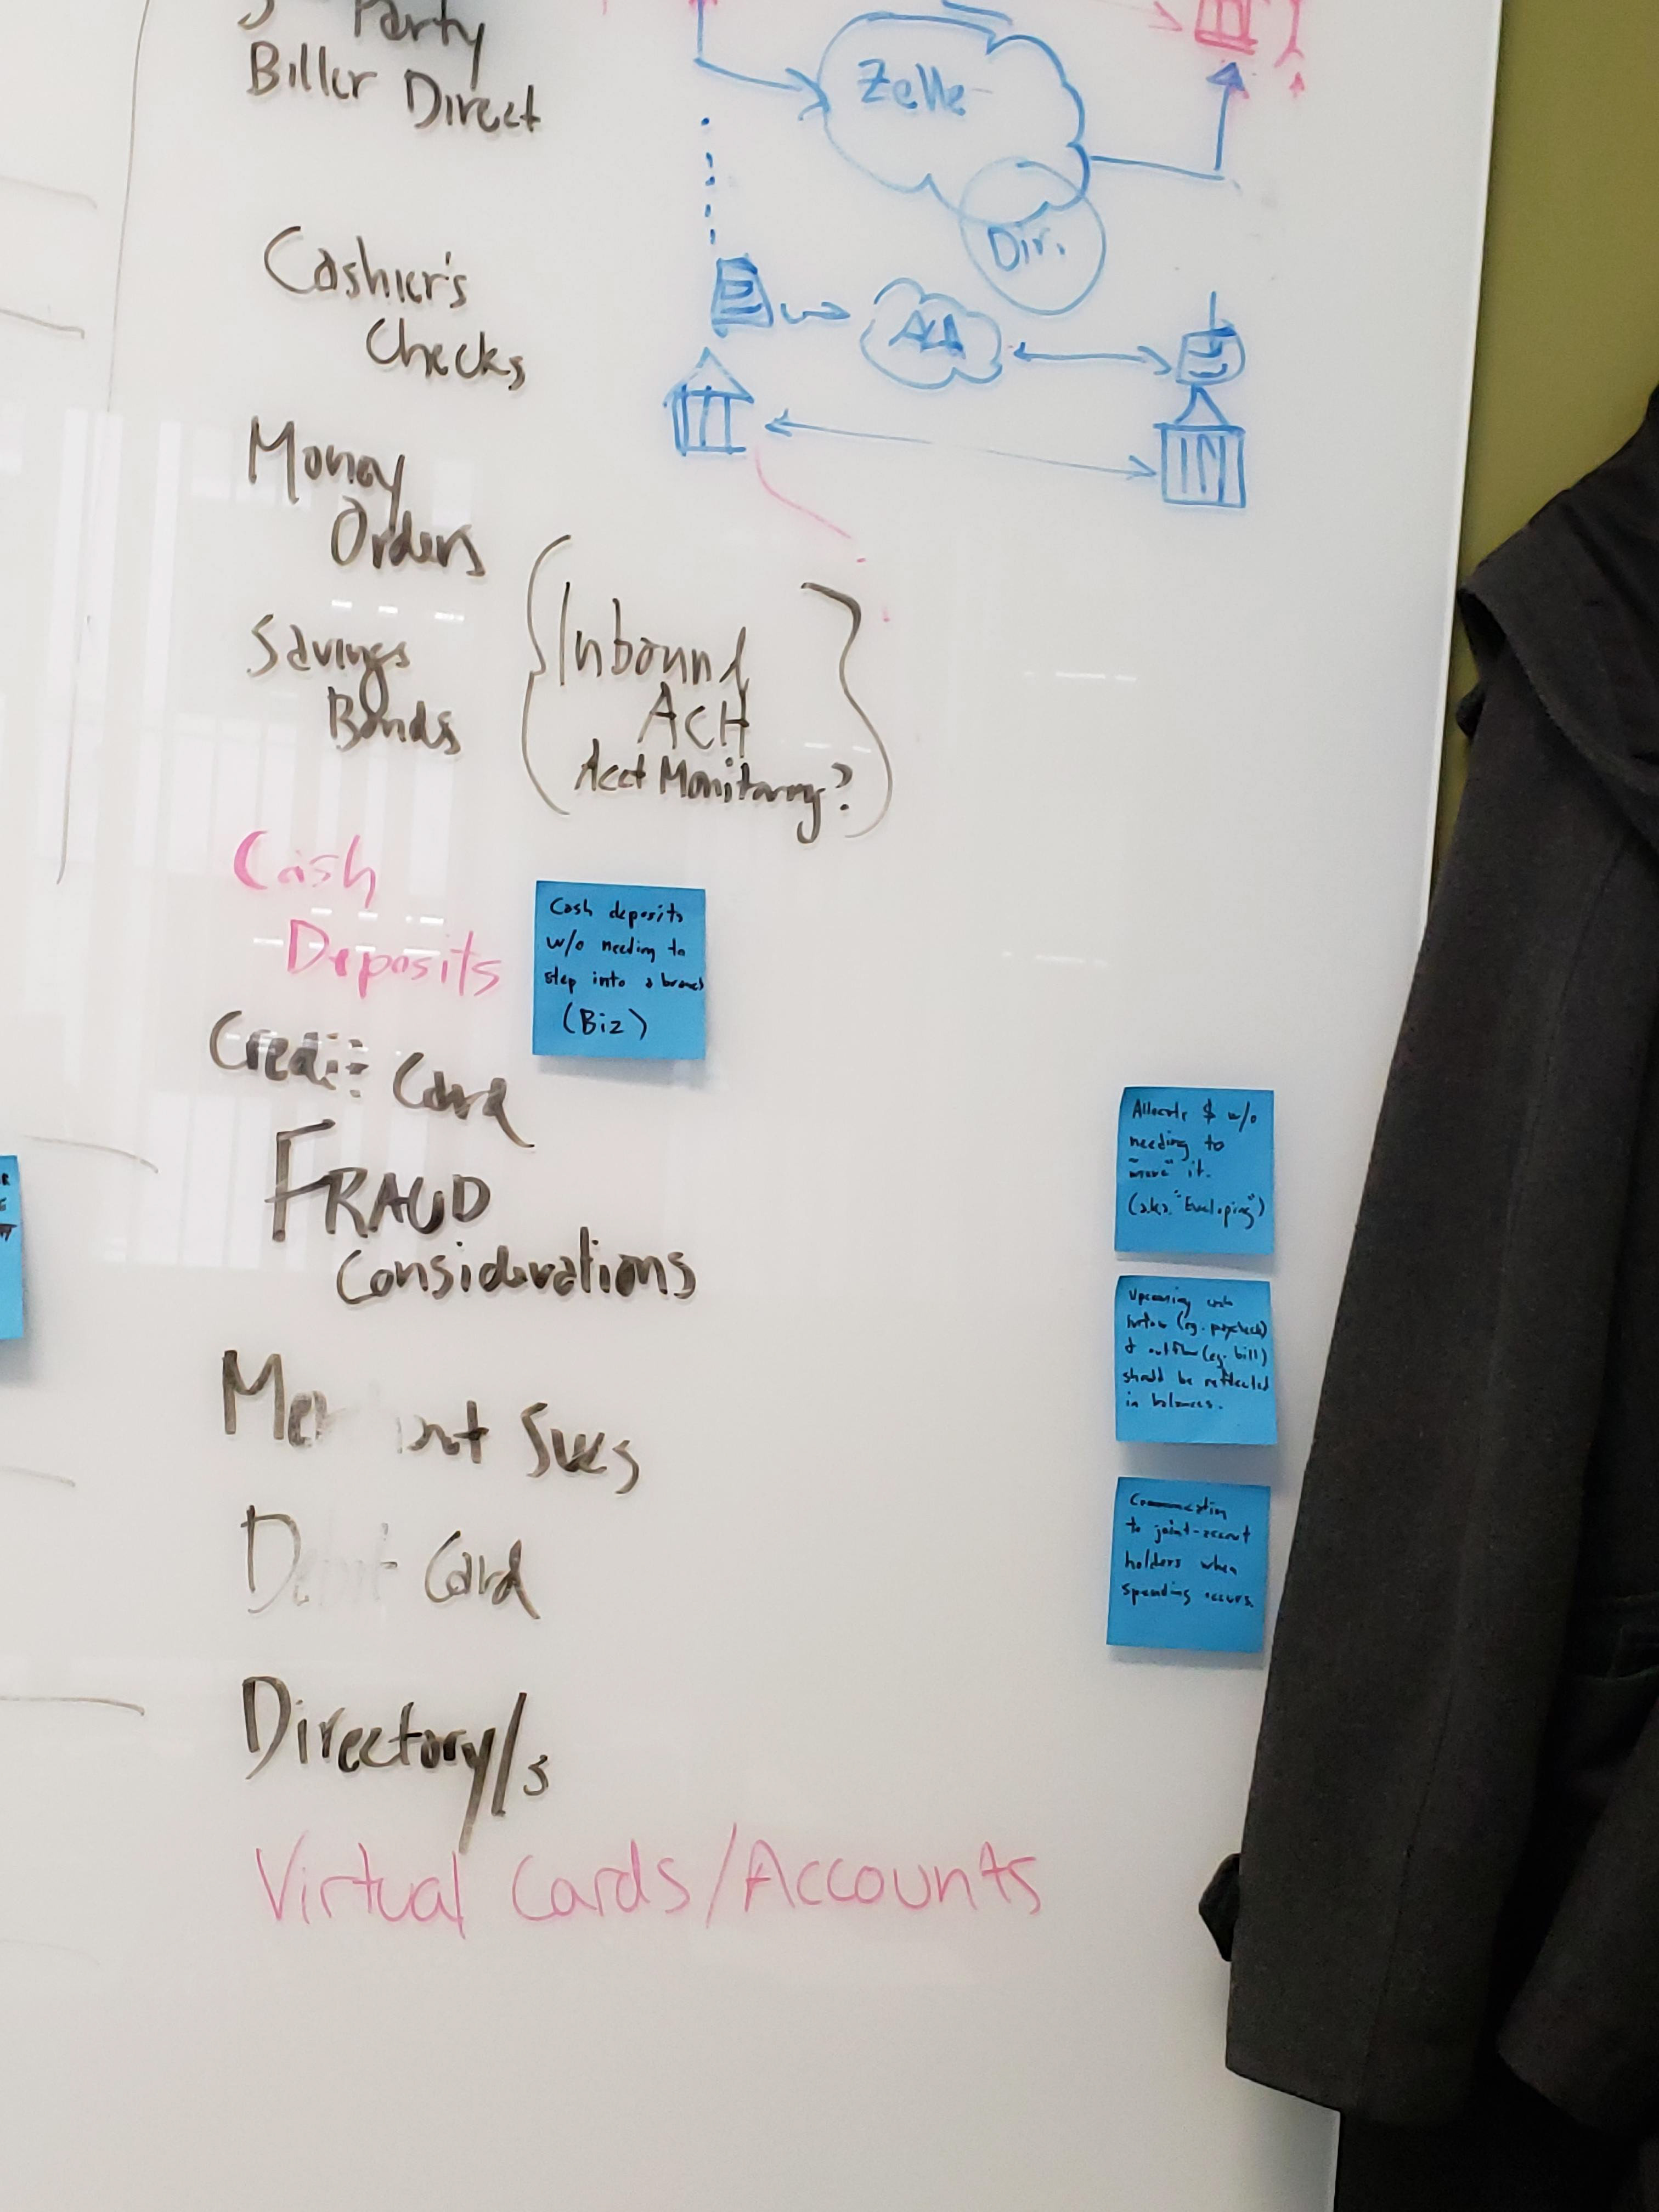 Party
Biller Direct
Zelle
Dir.
Cashier's
Checks
Money
Orders
Savings
Bonds
Inbound
ACH
Acct Monitoring?
Cash
Deposits
Cash deposits
w/o needing to
step into a branch
(Biz)
Credit Card
FRAUD
Considerations
Allocate $ w/o
needing to
"move" it.
(a.k.a. "Eveloping")
Upcoming cash
inflow (eg. paycheck)
& outflow (eg. bill)
should be reflected
in balances.
Svcs
Debit Card
Communication
to joint-account
holders when
spending occurs.
Directory/s
Virtual Cards/Accounts